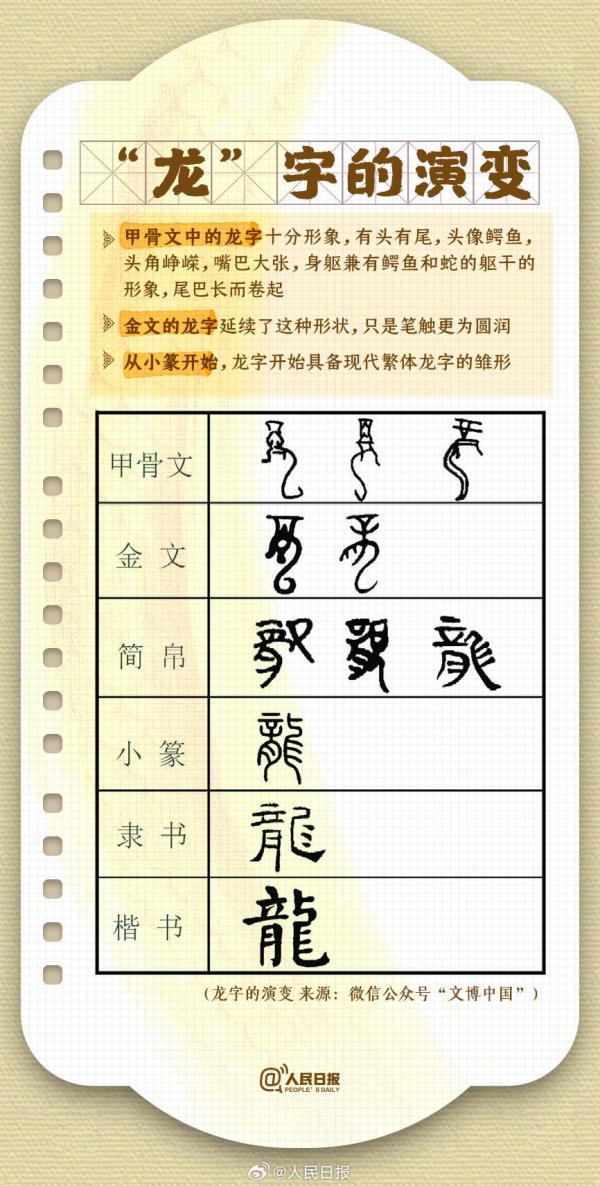 “龙”字的演变
甲骨文中的龙字十分形象,有头有尾,头像鳄鱼,
头角峥嵘,嘴巴大张,身躯兼有鳄鱼和蛇的躯干的
形象,尾巴长而卷起
金文的龙字延续了这种形状,只是笔触更为圆润
从小篆开始,龙字开始具备现代繁体龙字的雏形
甲骨文
金文
简帛
小篆 龍
隶书 龍
楷书 龍
(龙字的演变 来源:微信公众号“文博中国”)
@人民日报
PEOPLE'S DAILY
@人民日报